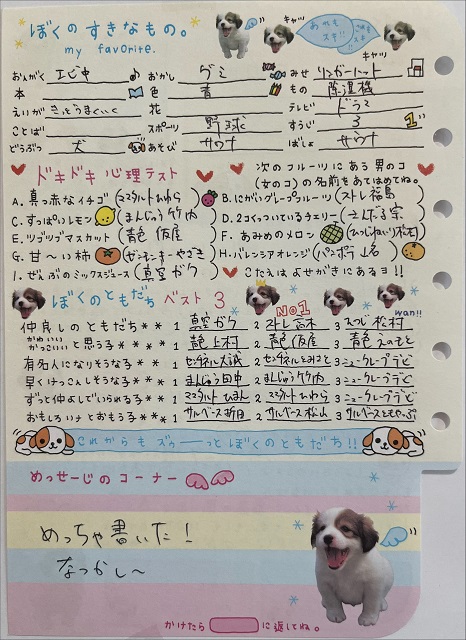 ぼくのすきなもの。
my favorite.
キャッ
あれも スキ!!
これも スキ♪
キャッ
おんがく エビ中 おかし グミ みせ リンガーハット
本 色 青 もの 除湿機
えいが きっとうまくいく 花 テレビ ドラマ
ことば スポーツ 野球 すうじ 3 1
どうぶつ 犬 あそび サウナ ばしょ サウナ
ドキドキ心理テスト
次のフルーツにある男のコ
(女のコ)の名前をあてはめてね。
A. 真っ赤なイチゴ (ママタルトひわら) B. にがいグレープフルーツ (ストレ福島)
C. すっぱいレモン (まんじゅう竹内) D. 2コくっついてるチェリー
E. ツブツブマスカット (青色仮屋) F. あみめのメロン
G. 甘〜い柿 H. バレンシアオレンジ
I. ぜんぶのミックスジュース (真空ガク) こたえはよせがきにあるヨ!!
ぼくのともだち ベスト3
No1
wan!!
仲良しのともだち** 1 真空ガク 2 ストレ高木 3 さつじ松村
かわいい かっこいい と思う子*** 1 青色上村 2 青色仮屋 3 青色えのもと
有名人になりそうな子* 1 センチネル大誠 2 センチネルとみさと 3 ニュークレープラビ
早くけっこんしそうな子* 1 まんじゅう田中 2 まんじゅう竹内 3 ニュークレープラビ
ずっと仲よしでいられる子* 1 ママタルトひわら 2 ママタルトひわら 3 ニュークレープラビ
おもしろいナとおもう子* 1 サルベース新目 2 サルベース松山 3
これからもズゥーーっとぼくのともだち!!
めっせーじのコーナー
めっちゃ書いた!
なつかし〜
かけたら に返してね。